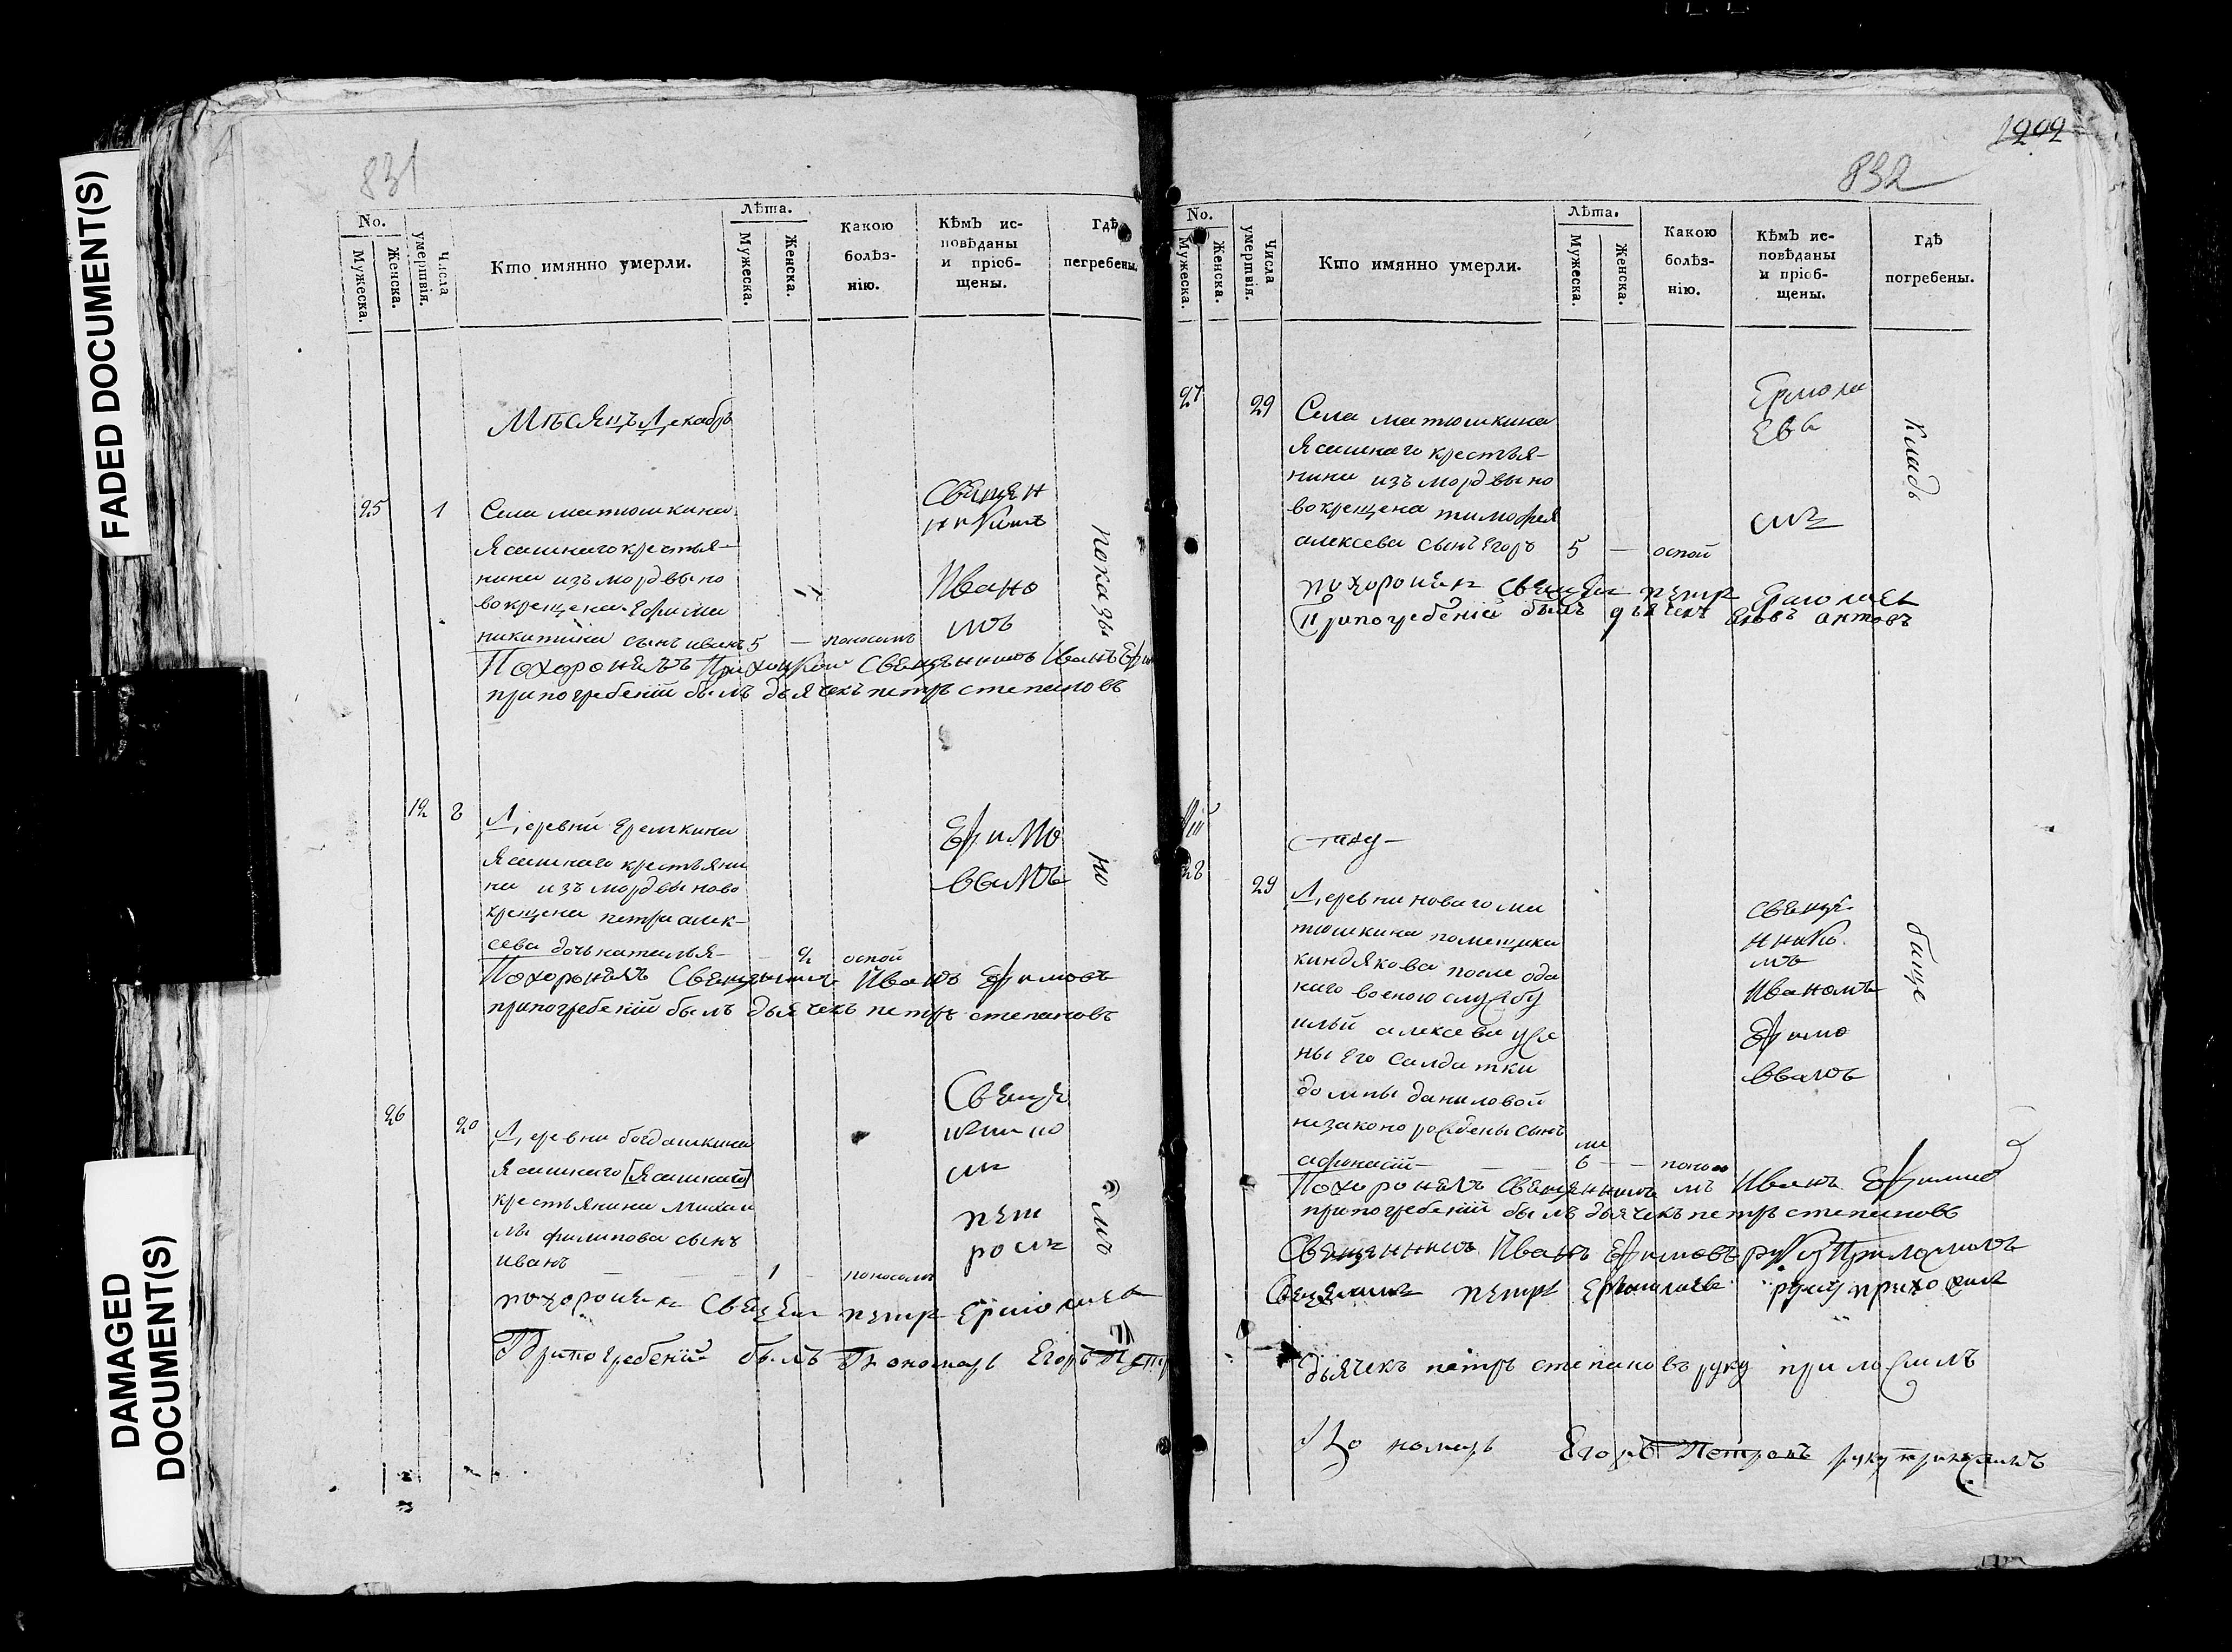 FADED DOCUMENT(S)
DAMAGED
DOCUMENT(S)
831
No.
Мужеска.
Женска.
Числа
умертвія.
Кто имянно умерли.
Лѣта.
Мужеска.
Женска.
Какою
болѣз-
нію.
Кѣмъ ис-
повѣданы
и пріоб-
щены.
Гдѣ
погребены.
Мѣсяцъ Декабрь
25 1 Села матюшкина
Ясашнаго крестья-
нина изъ мордвы но
вокрещена Ефима
никитина сынъ иванъ 5 — поносомъ
Похоронилъ Приходской Священникъ Иванъ
припогребеніи былъ дьячекъ петръ степановъ
Ивано
мъ
показы
12 8 Деревни Еремкина
Ясашнаго крестьяни
на изъ мордвы ново
крещена петра алек-
сева дочь наталья — 2 оспой
Похоронилъ Священникъ Иванъ Ефимовъ
припогребеніи былъ дьячекъ петръ степановъ
Ефимо
вымъ
но
26 20 Деревни богдашкина
Ясашнаго [Ясашнаго]
крестьянина михаи
лы филипова сынъ
иванъ — 1 — поносомъ
похоронилъ Свещен петръ Ермолаевъ
Припогребеніи былъ Пономарь Егоръ
пет
ромъ
мъ
1202
832
No.
Мужеска.
Женска.
Числа
умертвія.
Кто имянно умерли.
Лѣта.
Мужеска.
Женска.
Какою
болѣз-
нію.
Кѣмъ ис-
повѣданы
и пріоб-
щены.
Гдѣ
погребены.
27 29 Села матюшкина
Ясашнаго крестья-
нина изъ мордвы но
вокрещена тимофея
алексева сынъ Егоръ 5 — оспой
похоронилъ свещен петръ Ермолаевъ
Припогребеніи былъ дьячекъ
Ермола
евы
мъ
Кладъ
28 29 Деревни новаго ма
тюшкина помещика
киндякова после ода
наго военою службу
ильи алексева же
ны его салдатки
домны даниловой
незаконорожденъ сынъ
афонасіи — 6 — поносо
Похоронилъ Священникъ Иванъ
припогребеніи былъ дьячекъ петръ степановъ
свяще
ннико
мъ
Иваномъ
Ефимо
вымъ
бище
Священникъ Иванъ Ефимовъ руку Приложилъ
Священникъ петръ Ермолаевъ руку приложилъ
дьячекъ петръ степановъ руку приложилъ
Пономарь Егоръ Петровъ руку приложилъ